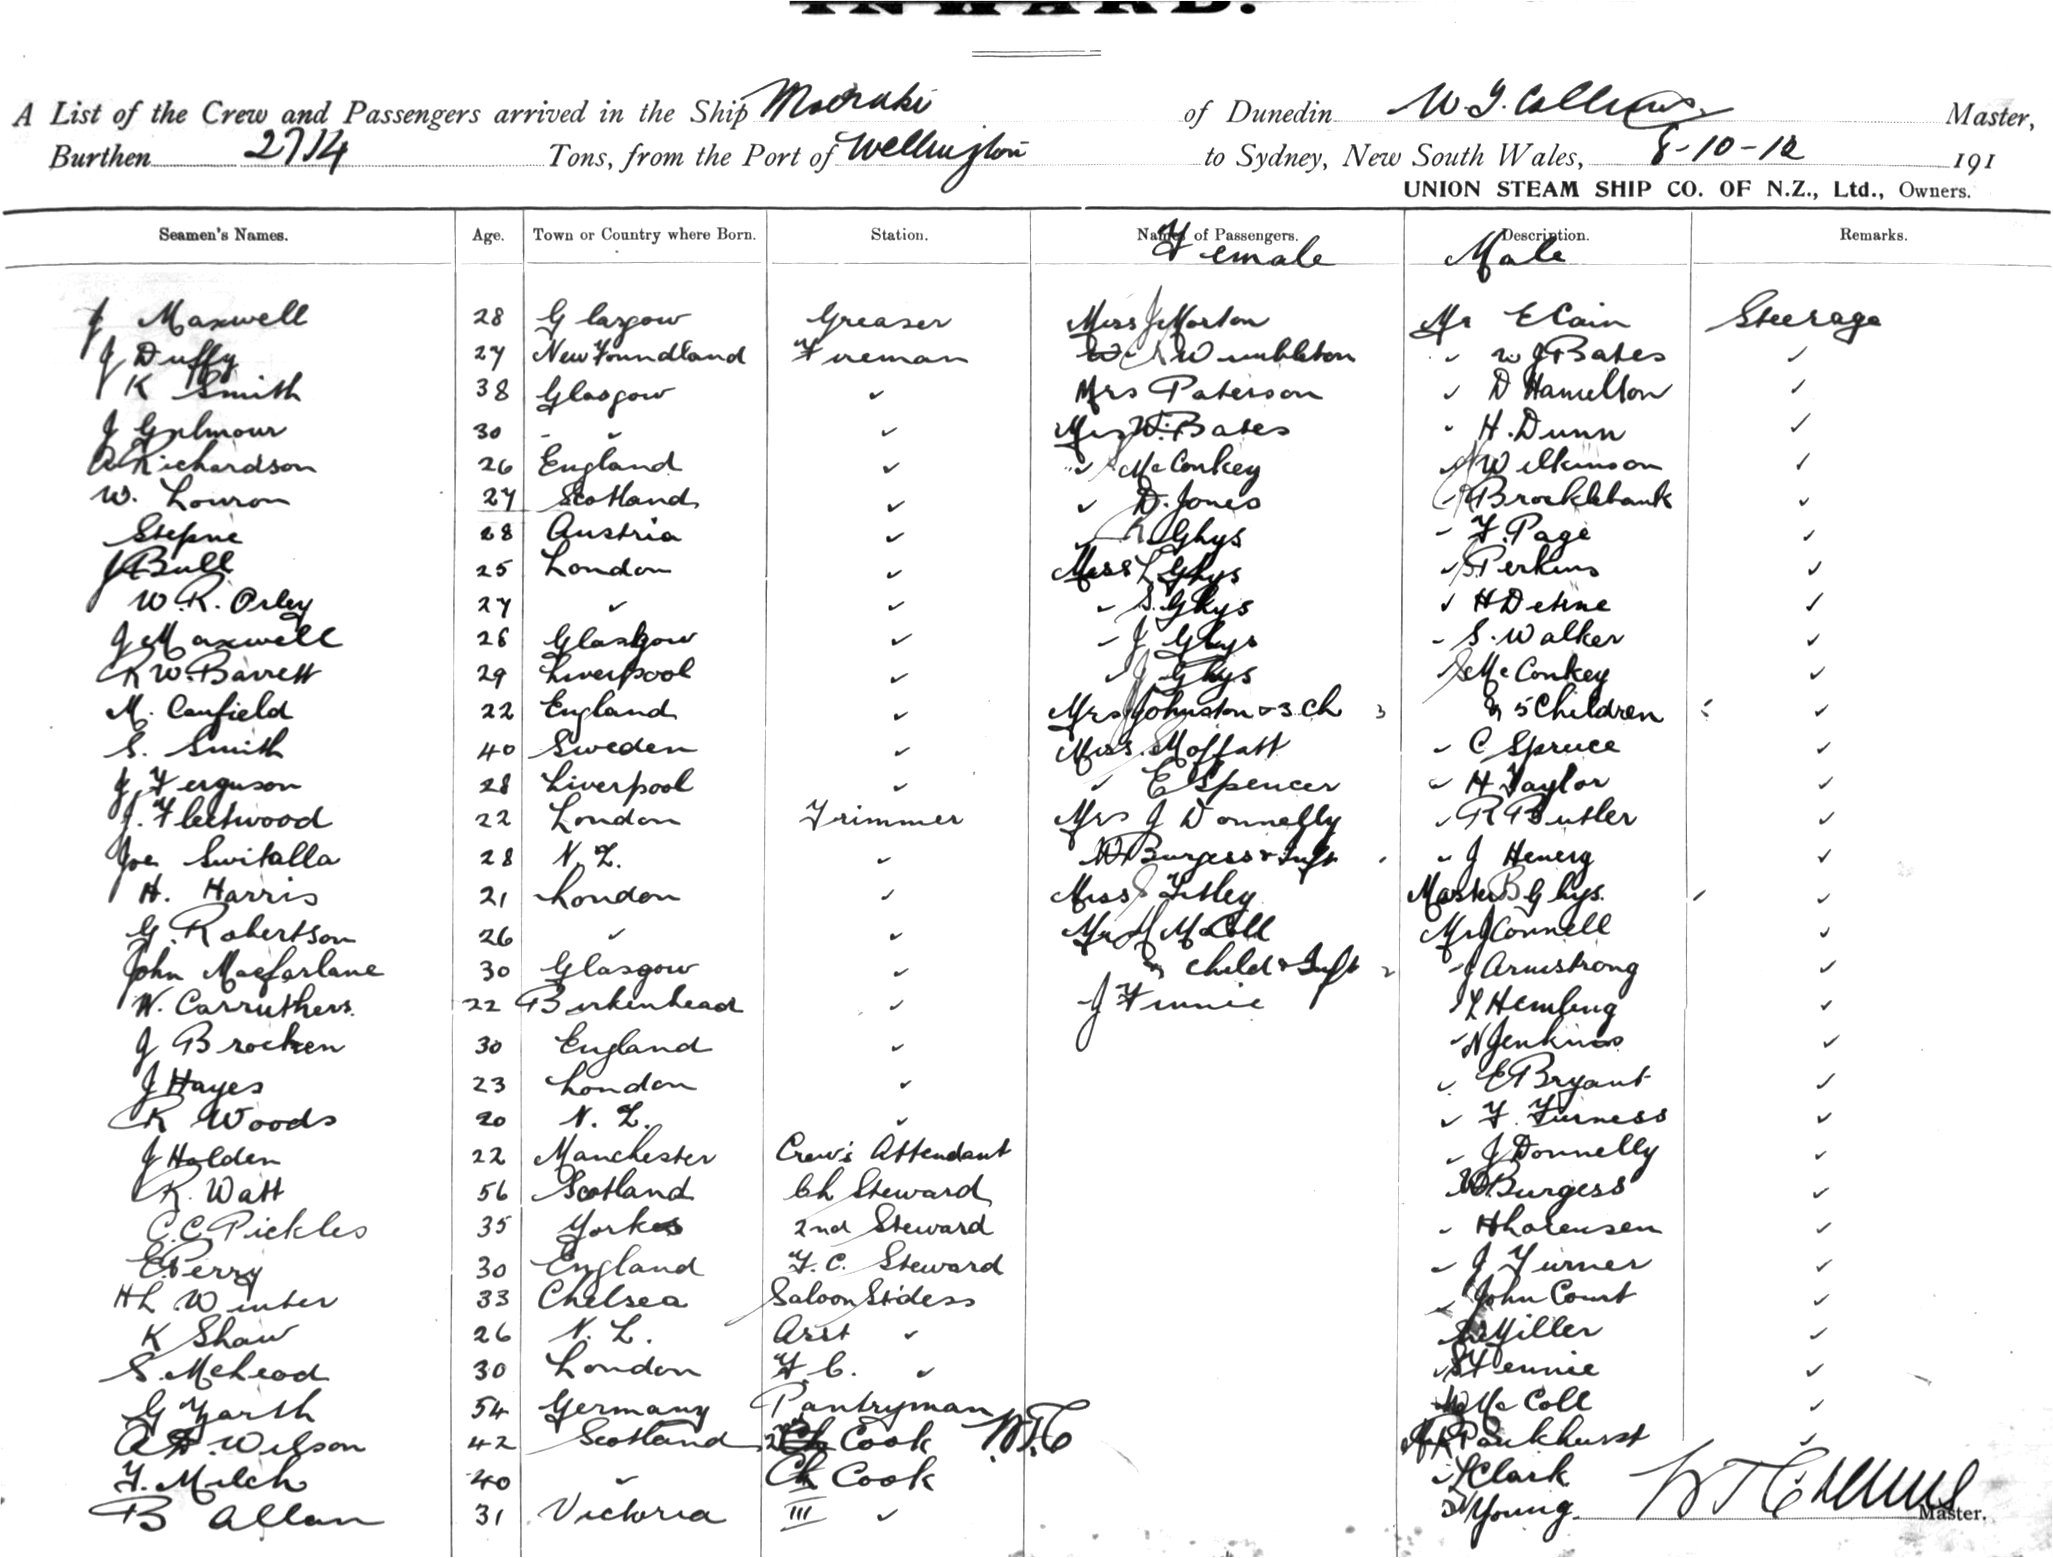 INWARD.
A List of the Crew and Passengers arrived in the Ship Moeraki of Dunedin W. J. Collins Master,
Burthen 2714 Tons, from the Port of Wellington to Sydney, New South Wales, 8-10-12 191
UNION STEAM SHIP CO. OF N.Z., Ltd., Owners.
Seamen's Names. Age. Town or Country where Born. Station. Names of Passengers. Description. Remarks.
Female Male
J Maxwell 28 Glasgow Greaser Miss J Morton Mr E Cain Steerage
J Duffy 27 Newfoundland Fireman Wimbleton ✓ W J Bates ✓
K Smith 38 Glasgow ✓ Mrs Paterson ✓ D Hamilton ✓
J Gilmour 30 ✓ ✓ Mrs W. Bates ✓ H. Dunn ✓
A Richardson 26 England ✓ ✓ McConkey ✓ Wilkinson ✓
W. Lowron 27 Scotland ✓ ✓ D. Jones ✓ Brocklebank ✓
Stepne 28 Austria ✓ Ghys ✓ F. Page ✓
J Bull 25 London ✓ Miss L Ghys ✓ S Perkins ✓
W. R. Orley 27 ✓ ✓ ✓ S. Ghys ✓ H Detine ✓
J Maxwell 28 Glasgow ✓ ✓ J Ghys ✓ S. Walker ✓
R W. Barrett 29 Liverpool ✓ ✓ J Ghys ✓ McConkey ✓
M. Canfield 22 England ✓ Mrs Johnston & 3 ch 3 & 5 Children ✓
S. Smith 40 Sweden ✓ Miss Moffatt ✓ C Spruce ✓
J Ferguson 28 Liverpool ✓ ✓ E Spencer ✓ H. Taylor ✓
J. Fleetwood 22 London Trimmer Mrs J Donnelly ✓ R Butler ✓
Joe Switalla 28 N. Z. ✓ W Burgess & Inft ✓ J Henery ✓
H. Harris 21 London ✓ Miss J Titley Master B Ghys. ✓
G. Robertson 26 ✓ ✓ Mrs M McColl Mr J Connell ✓
John Macfarlane 30 Glasgow ✓ & child & Inft 2 ✓ J Armstrong ✓
W. Carruthers 22 Birkenhead ✓ J Finnie L Hembing ✓
J Brocken 30 England ✓ N Jenkins ✓
J Hayes 23 London ✓ ✓ E Bryant ✓
R Woods 20 N. Z. ✓ ✓ F. Furness ✓
J Holden 22 Manchester Crew's Attendant ✓ J Donnelly ✓
R. Watt 56 Scotland Ch Steward W Burgess ✓
C. C. Pickles 35 Yorks 2nd Steward ✓ H Lorensen ✓
E Perry 30 England F. C. Steward ✓ J Turner ✓
H L Winter 33 Chelsea Saloon St'dess ✓ John Court ✓
K Shaw 26 N. Z. Asst ✓ Miller ✓
S. McLeod 30 London F. C. ✓ Fennie ✓
G Yarth 54 Germany Pantryman W McColl ✓
A H. Wilson 42 Scotland 2 Cook W.J.C Mr R Pankhurst ✓
F. Milch 40 ✓ Ch Cook ✓ L Clark
B Allan 31 Victoria III ✓ Young W J Collins Master.